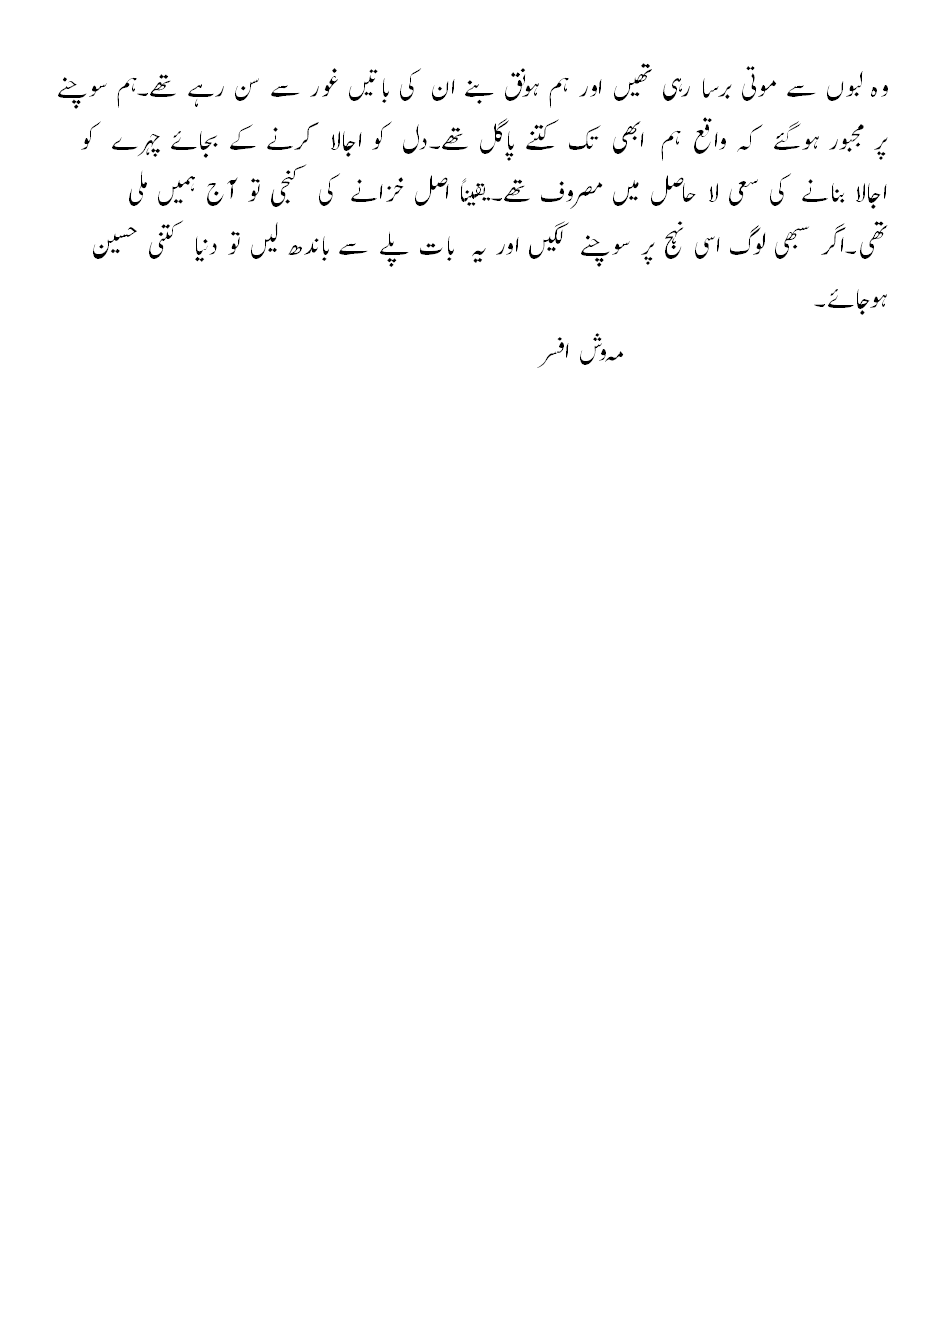 وہ لبوں سے موتی برسا رہی تھیں اور ہم ہونق بنے ان کی باتیں غور سے سن رہے تھے۔ہم سوچنے
پر مجبور ہوگئے کہ واقع ہم ابھی تک کتنے پاگل تھے۔دل کو اجالا کرنے کے بجائے چہرے کو
اجالا بنانے کی سعی لا حاصل میں مصروف تھے۔یقیناً اصل خزانے کی کنجی تو آج ہمیں ملی
تھی۔اگر سبھی لوگ اسی نہج پر سوچنے لگیں اور یہ بات پلے سے باندھ لیں تو دنیا کتنی حسین
ہوجائے۔
مہوش افسر